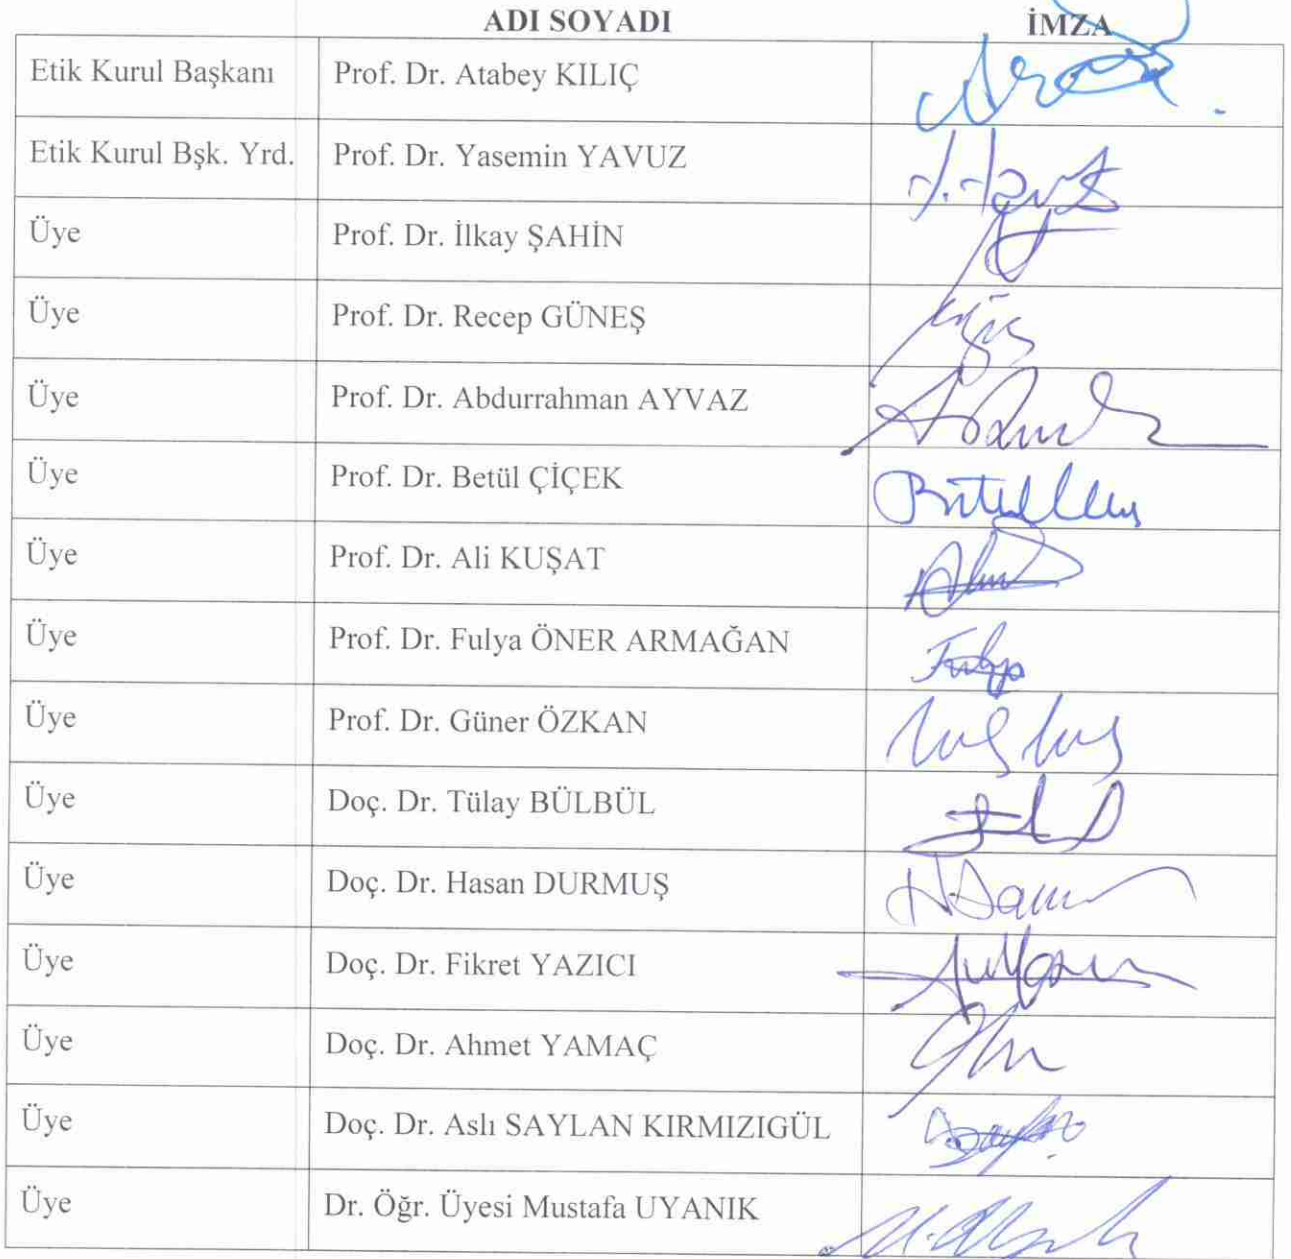 ADI SOYADI İMZA
Etik Kurul Başkanı Prof. Dr. Atabey KILIÇ
Etik Kurul Bşk. Yrd. Prof. Dr. Yasemin YAVUZ
Üye Prof. Dr. İlkay ŞAHİN
Üye Prof. Dr. Recep GÜNEŞ
Üye Prof. Dr. Abdurrahman AYVAZ
Üye Prof. Dr. Betül ÇİÇEK
Üye Prof. Dr. Ali KUŞAT
Üye Prof. Dr. Fulya ÖNER ARMAĞAN
Üye Prof. Dr. Güner ÖZKAN
Üye Doç. Dr. Tülay BÜLBÜL
Üye Doç. Dr. Hasan DURMUŞ
Üye Doç. Dr. Fikret YAZICI
Üye Doç. Dr. Ahmet YAMAÇ
Üye Doç. Dr. Aslı SAYLAN KIRMIZIGÜL
Üye Dr. Öğr. Üyesi Mustafa UYANIK